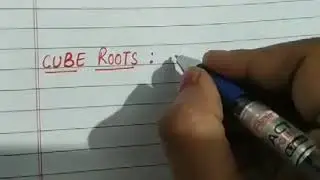 CUBE ROOTS :